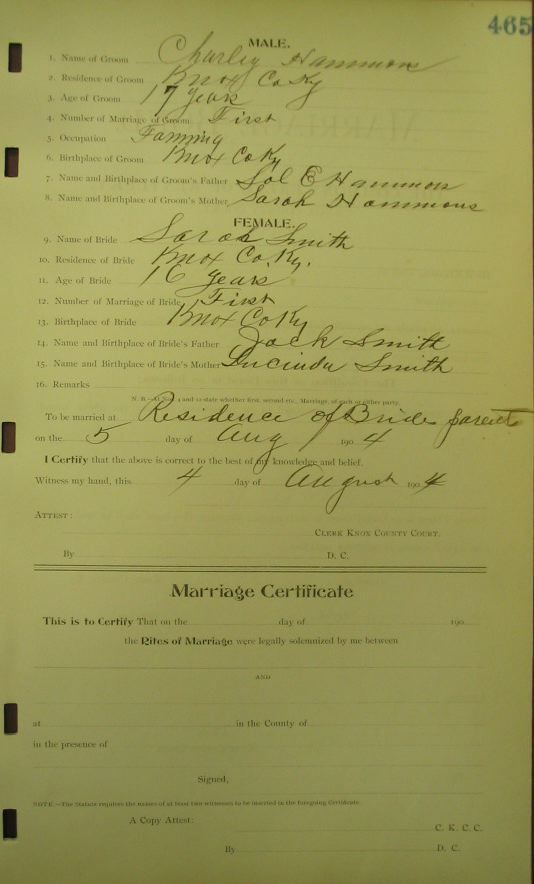 465
MALE.
1. Name of Groom Charley Hammons
2. Residence of Groom Knox Co Ky
3. Age of Groom 17 years
4. Number of Marriage of Groom First
5. Occupation Farming
6. Birthplace of Groom Knox Co Ky
7. Name and Birthplace of Groom's Father Sol E Hammons
8. Name and Birthplace of Groom's Mother Sarah Hammons
FEMALE.
9. Name of Bride Sarah Smith
10. Residence of Bride Knox Co. Ky.
11. Age of Bride 16 years
12. Number of Marriage of Bride First
13. Birthplace of Bride Knox Co Ky
14. Name and Birthplace of Bride's Father Jack Smith
15. Name and Birthplace of Bride's Mother Lucinda Smith
16. Remarks
N. B.—At Nos. 4 and 12 state whether first, second etc., Marriage, of each or either party.
To be married at Residence of Brides parents
on the 5 day of Aug 190 4
I Certify that the above is correct to the best of my knowledge and belief.
Witness my hand, this 4 day of August 190 4
ATTEST:
CLERK KNOX COUNTY COURT.
By D. C.
Marriage Certificate
This is to Certify That on the day of 190
the Rites of Marriage were legally solemnized by me between
AND
at in the County of
in the presence of
Signed,
NOTE.—The Statute requires the names of at least two witnesses to be married in the foregoing Certificate.
A Copy Attest:
C. K. C. C.
By D. C.